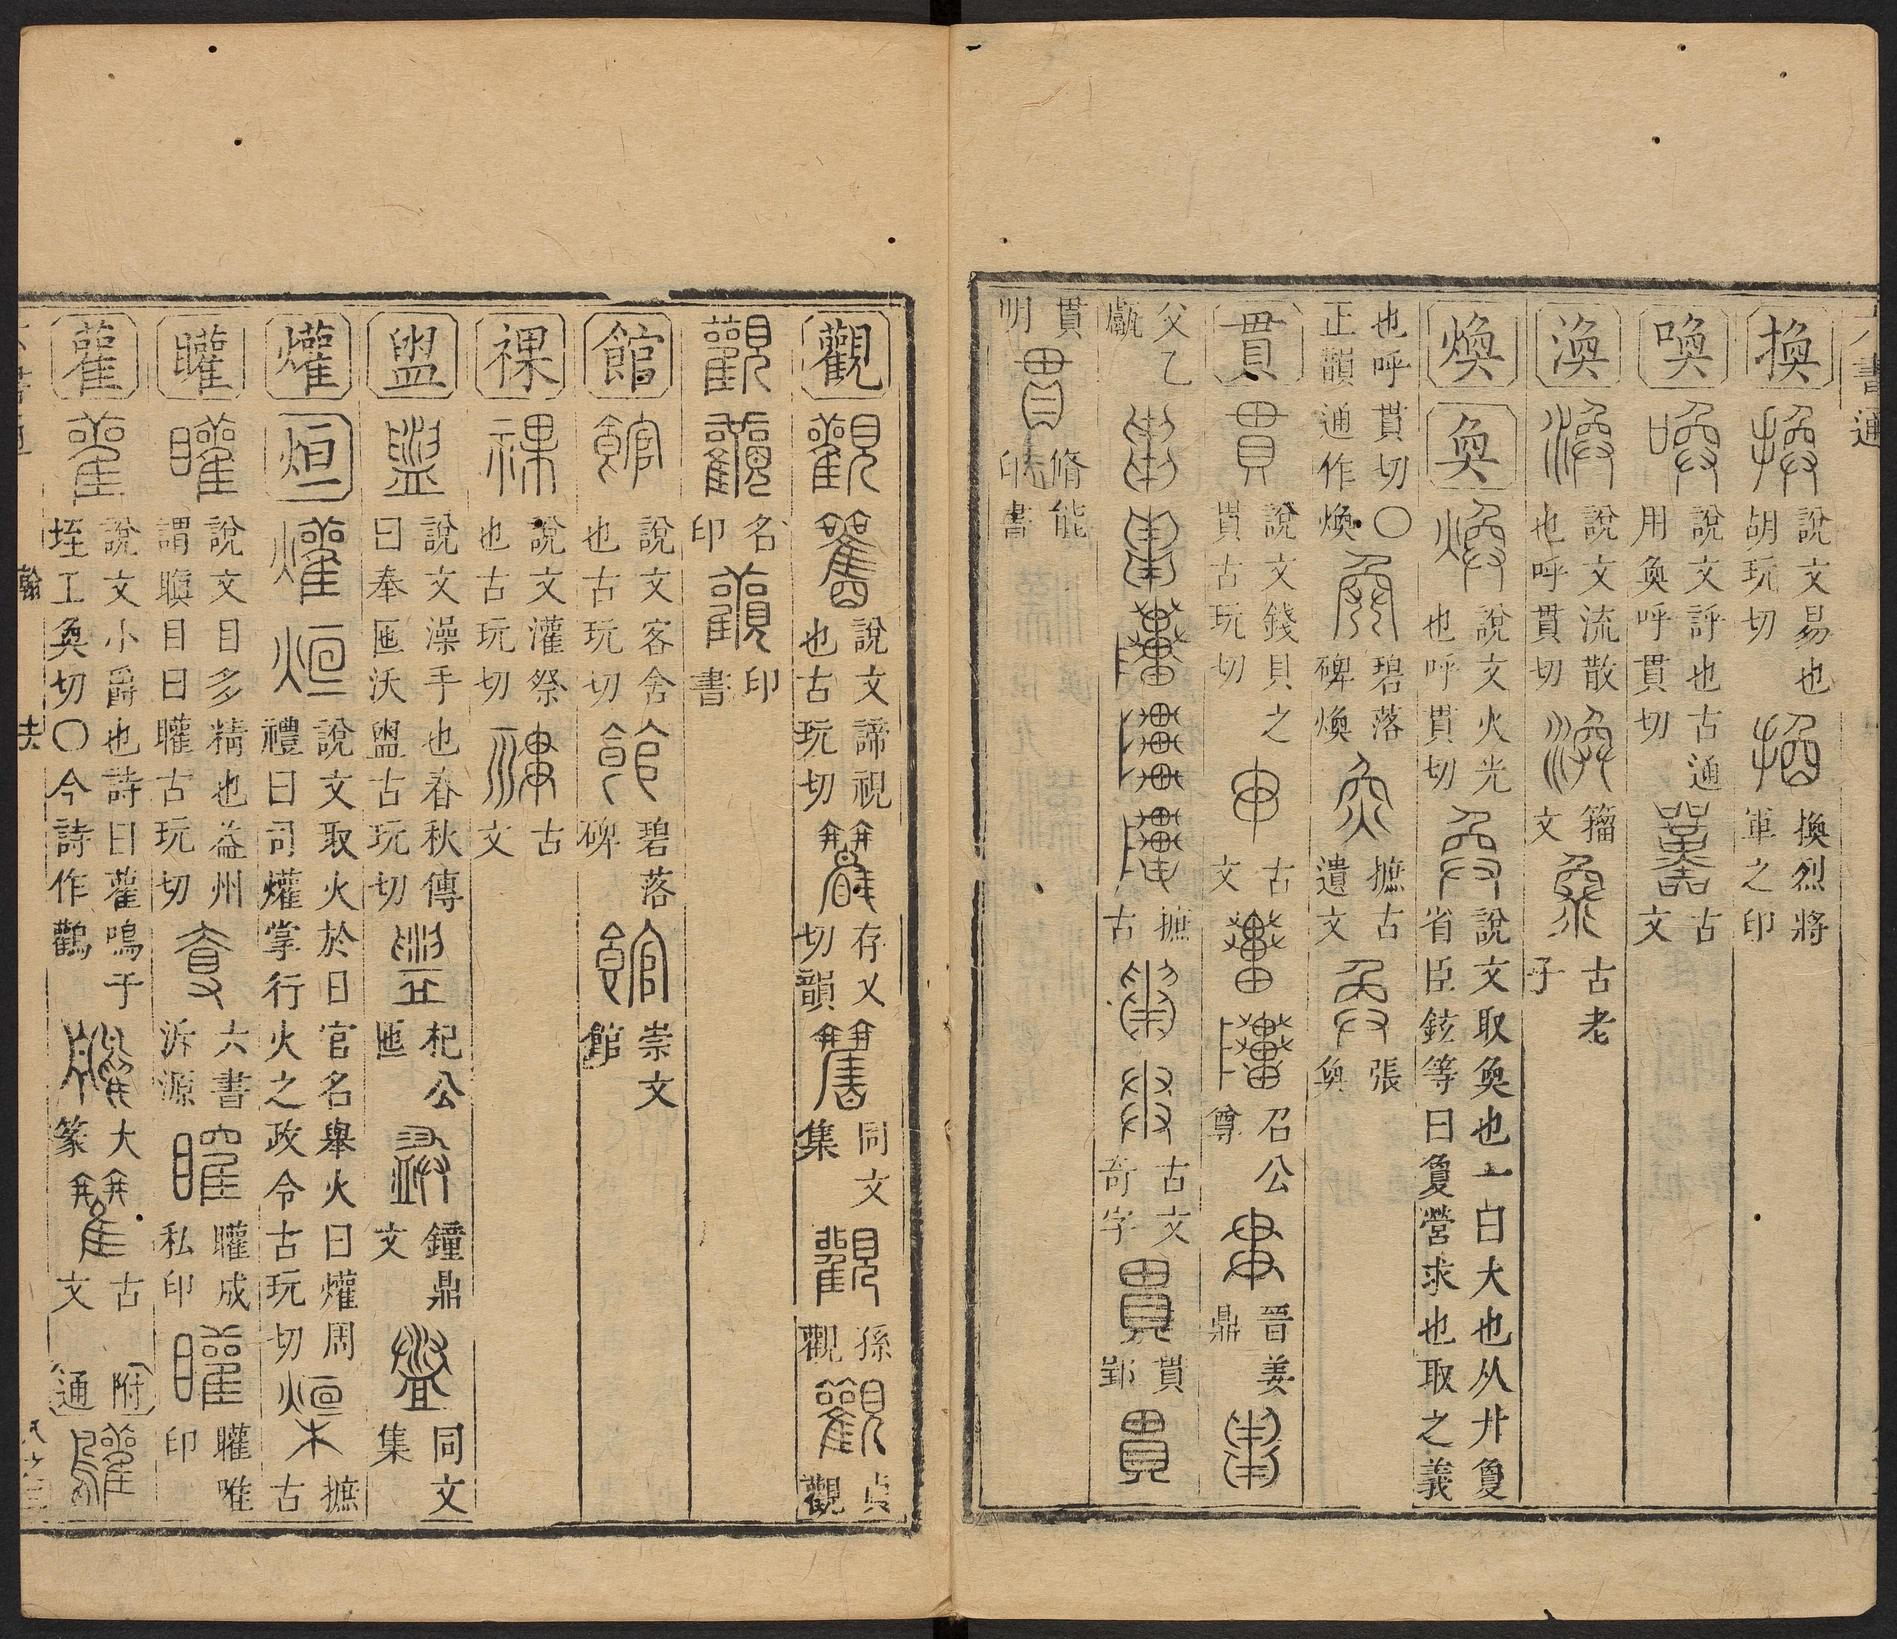 六書通
換 說文易也胡玩切 換烈將軍之印
喚 說文評也古通用奐呼貫切 古文
渙 說文流散也呼貫切 籀文 古老子
煥 奐 說文火光也呼貫切 說文取奐也一曰大也从廾敻省臣鉉等曰敻營求也取之義
也呼貫切○正韻通作煥 碧落碑煥 摭古遺文 張奐
貫 說文錢貝之貫古玩切 古文 召公尊 晉姜鼎
父乙甗 摭古 古文奇字 貫郢
貫明 脩能印書
觀 說文諦視也古玩切 存乂切韻 同文集 孫觀 觀
名印 印書
館 說文客舍也古玩切 碧落碑 崇文館
祼 說文灌祭也古玩切 古文
盥 說文澡手也春秋傳曰奉匜沃盥古玩切 杞公匜 鐘鼎文 同文集
爟 烜 說文取火於日官名舉火曰爟周禮曰司爟掌行火之政令古玩切 摭古
矔 說文目多精也益州謂瞋目曰矔古玩切 六書泝源 矔成私印 矔唯印
雚 說文小爵也詩曰雚鳴于垤工奐切○今詩作鸛 大篆 古文 附通
翰